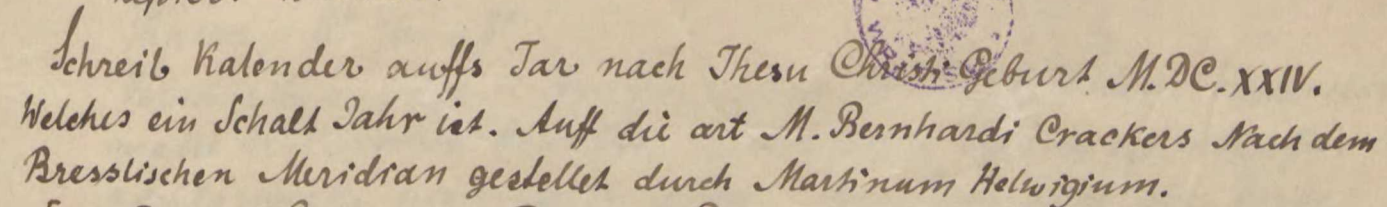 Schreib Kalender auffs Jar nach Jhesu Christi Geburt M.DC.XXIV.
Welches ein Schalt Jahr ist. Auff die art M. Bernhardi Crackers Nach dem
Bresslischen Meridian gestellet durch Martinum Helwigium.